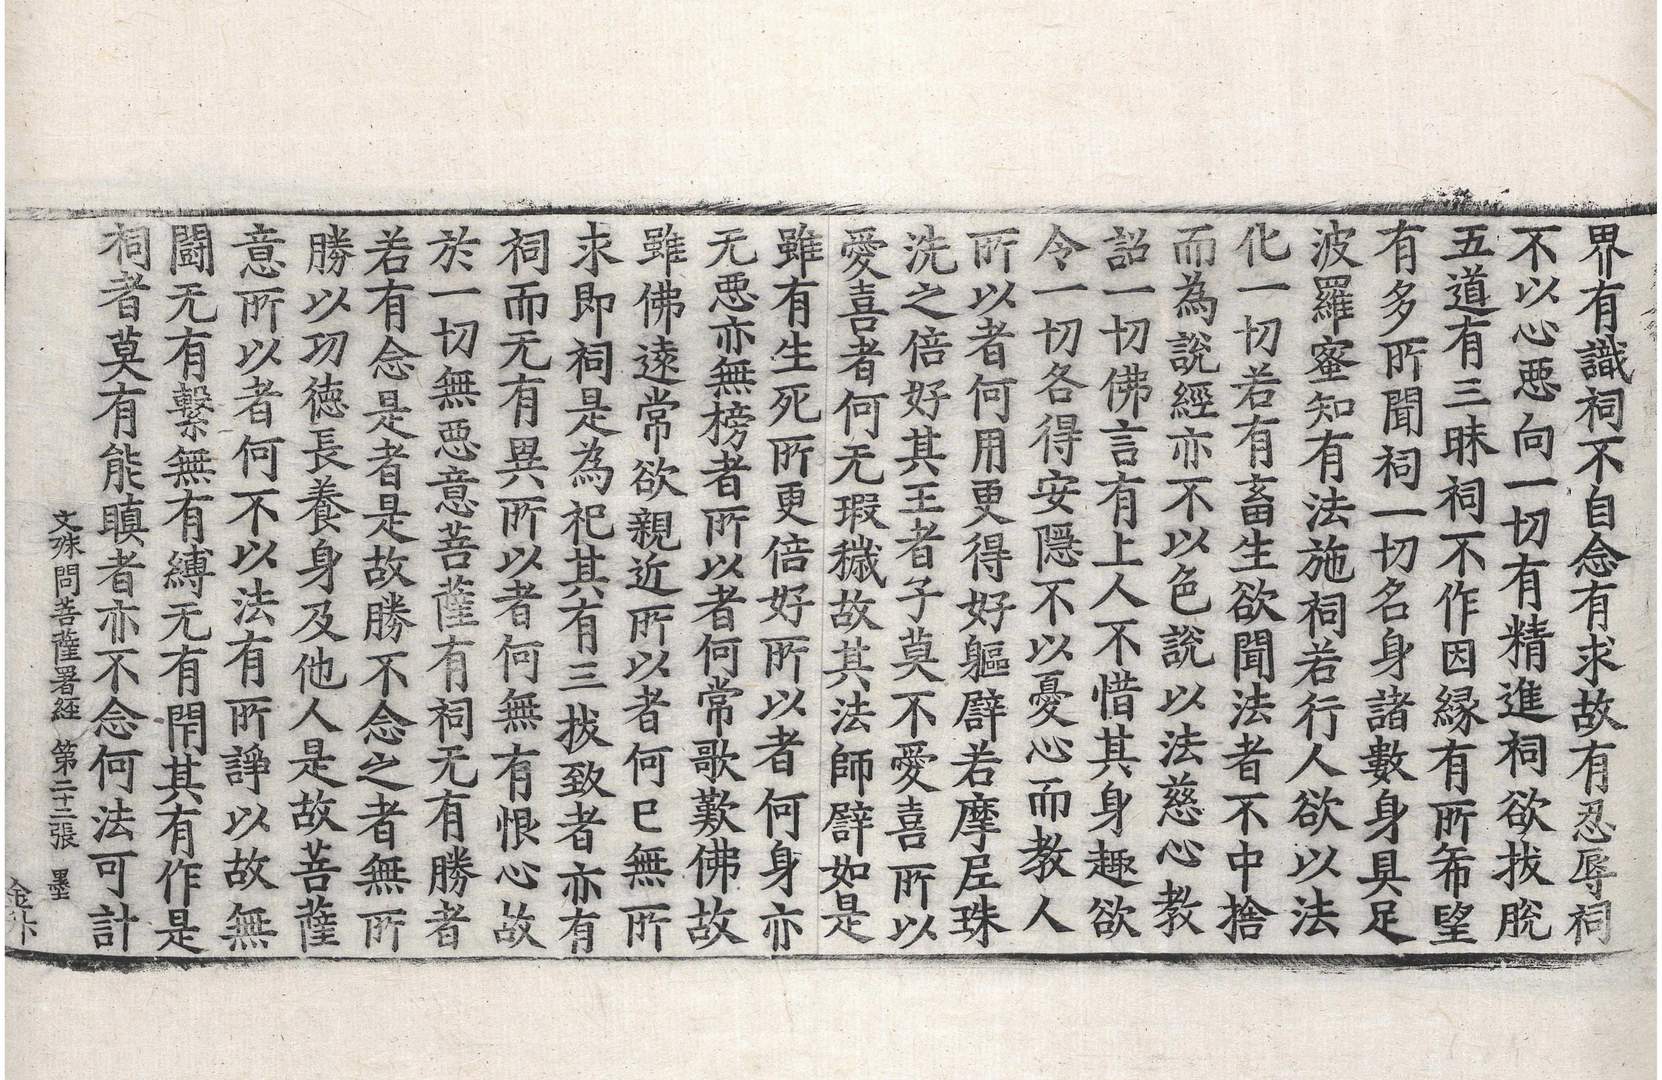 界有識祠不自念有求故有忍辱祠
不以心惡向一切有精進祠欲拔脫
五道有三昧祠不作因緣有所希望
有多所聞祠一切名身諸數身具足
波羅蜜知有法施祠若行人欲以法
化一切若有畜生欲聞法者不中捨
而為說經亦不以色說以法慈心教
詔一切佛言有上人不惜其身趣欲
令一切各得安隱不以憂心而教人
所以者何用更得好軀辟若摩尼珠
洗之倍好其王者子莫不愛喜所以
愛喜者何无瑕穢故其法師辟如是
雖有生死所更倍好所以者何身亦
无惡亦無榜者所以者何常歌歎佛故
雖佛遠常欲親近所以者何已無所
求即祠是為祀其有三拔致者亦有
祠而无有異所以者何無有恨心故
於一切無惡意菩薩有祠无有勝者
若有念是者是故勝不念之者無所
勝以功德長養身及他人是故菩薩
意所以者何不以法有所諍以故無
鬪无有繫無有縛无有閇其有作是
祠者莫有能瞋者亦不念何法可計
文殊問菩薩署經 第二十三張 墨